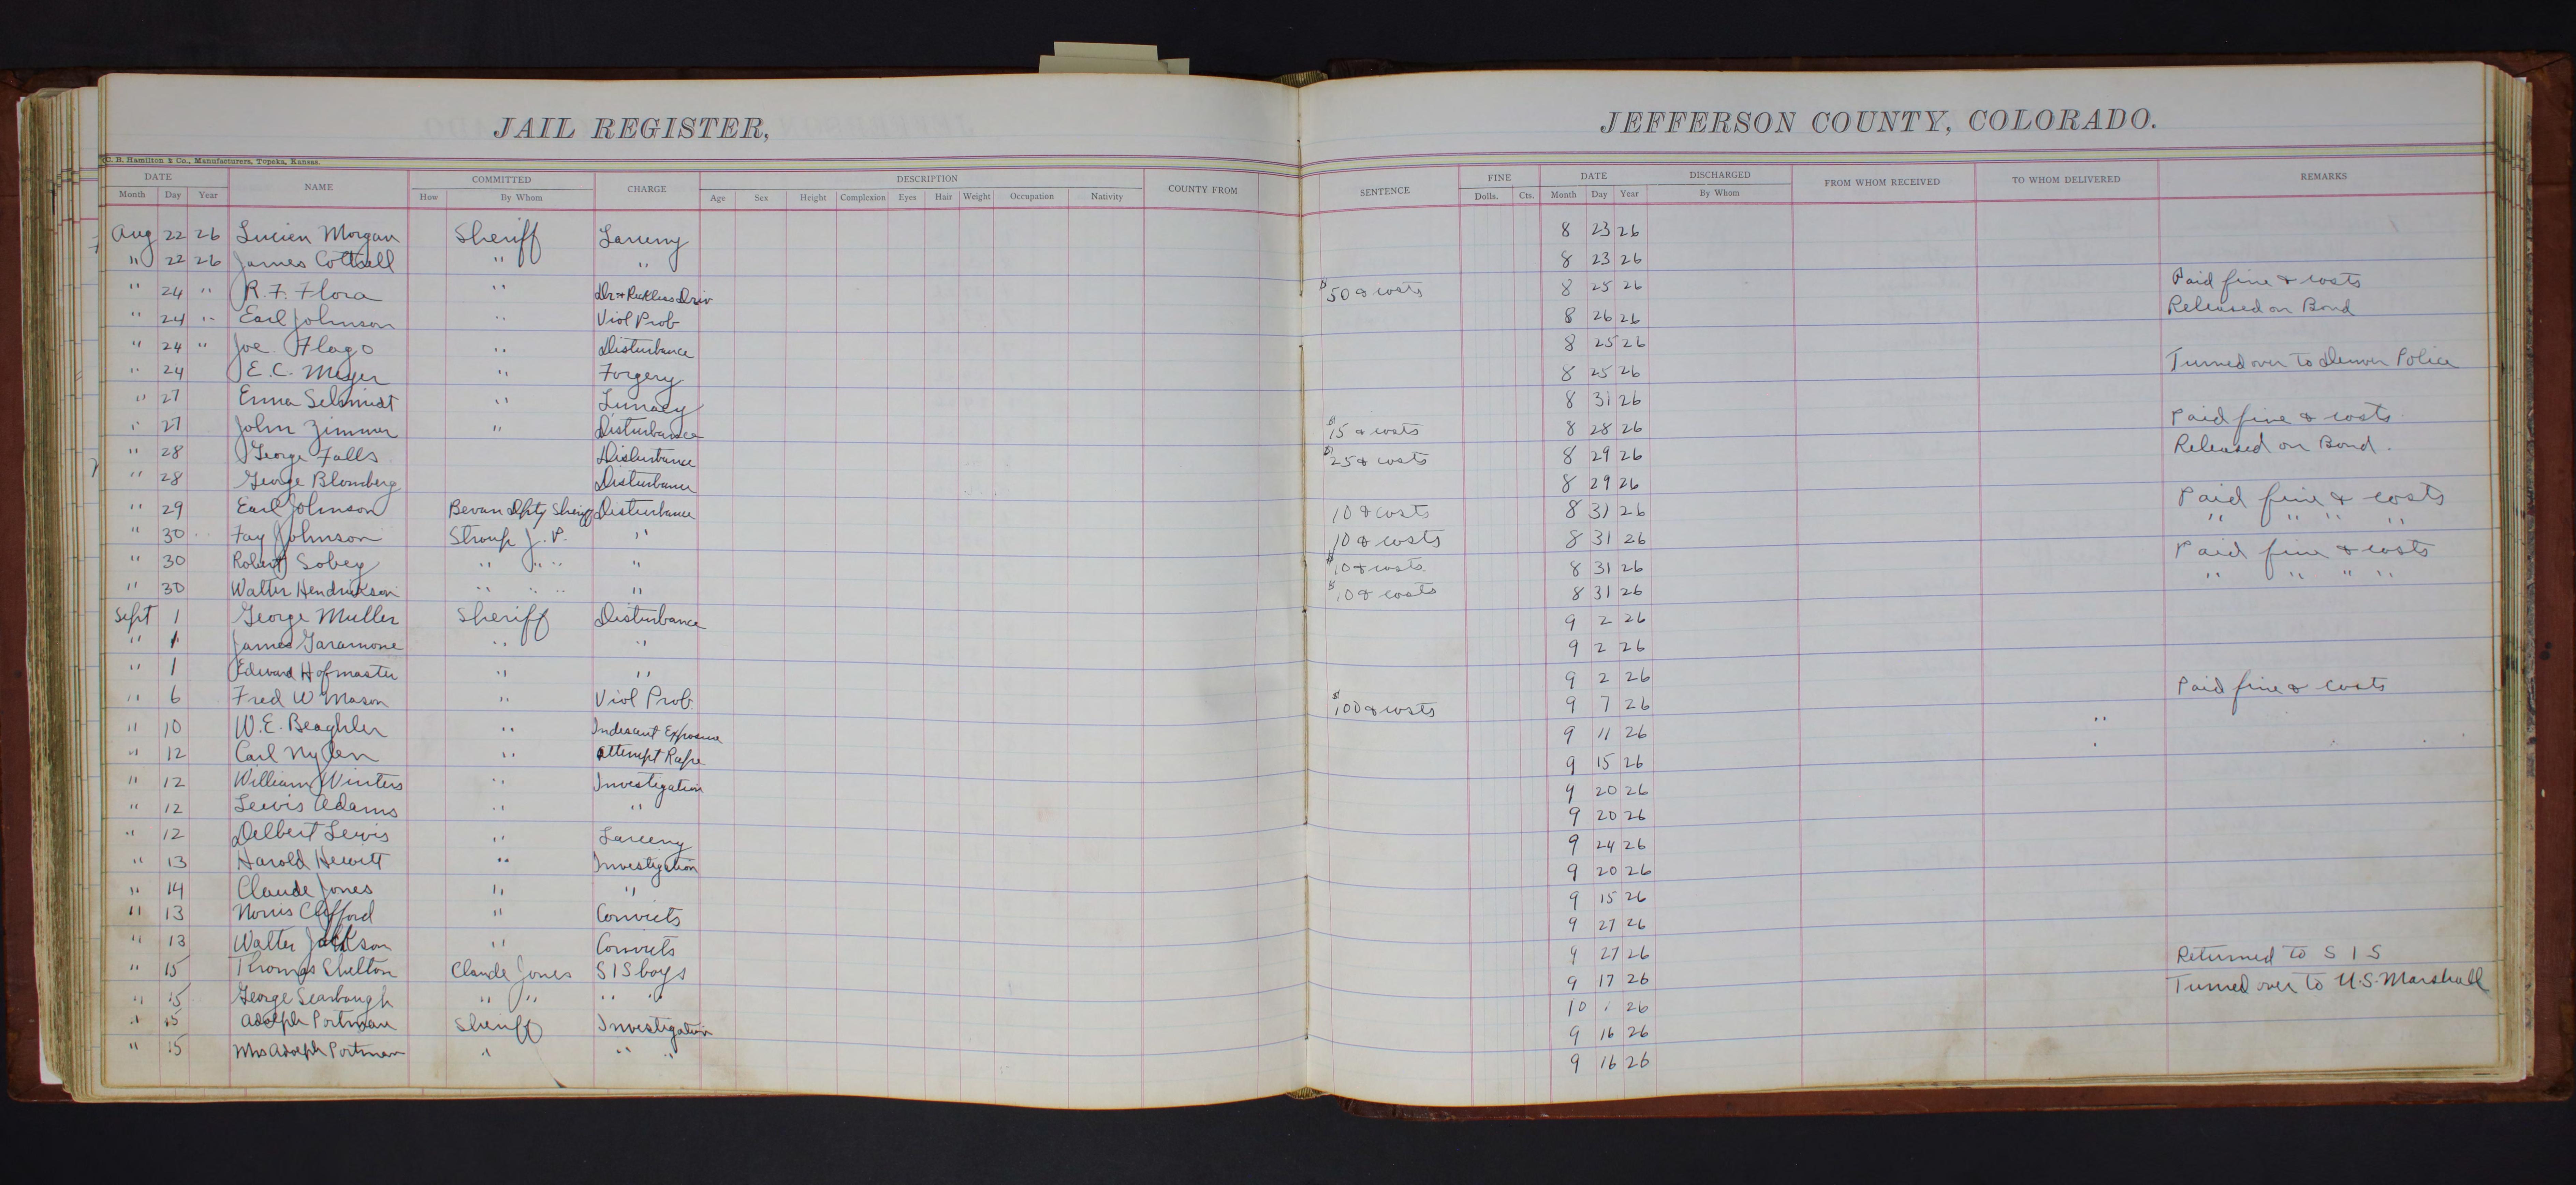 JAIL REGISTER, JEFFERSON COUNTY, COLORADO.
C. B. Hamilton & Co., Manufacturers, Topeka, Kansas.
DATE NAME COMMITTED CHARGE DESCRIPTION COUNTY FROM SENTENCE FINE DATE DISCHARGED FROM WHOM RECEIVED TO WHOM DELIVERED REMARKS
Month Day Year How By Whom Age Sex Height Complexion Eyes Hair Weight Occupation Nativity Dolls. Cts. Month Day Year By Whom
Aug 22 26 Lucien Morgan Sheriff Larceny 8 23 26
" 22 26 James Cottrell " " 8 23 26
" 24 " R. F. Flora " Dr & Reckless Driv $50 & costs 8 25 26 Paid fine & costs
" 24 " Earl Johnson " Viol Prob 8 26 26 Released on Bond
" 24 " Joe Flago " Disturbance 8 25 26
" 24 E. C. Meyer " Forgery 8 25 26 Turned over to Denver Police
" 27 Emma Schmidt " Lunacy 8 31 26
" 27 John Zimmer " Disturbance $15 & costs 8 28 26 Paid fine & costs
" 28 George Falls Disturbance $25 & costs 8 29 26 Released on Bond.
" 28 George Blomberg Disturbance 8 29 26
" 29 Earl Johnson Bevan Dpty Sheriff Disturbance 10 & costs 8 31 26 Paid fine & costs
" 30 " Fay Johnson Stroup J. P. " 10 & costs 8 31 26 " " " "
" 30 Robert Sobey " " " " $10 & costs 8 31 26 Paid fine & costs
" 30 Walter Hendrickson " " " " $10 & costs 8 31 26 " " " "
Sept 1 George Muller Sheriff Disturbance 9 2 26
" 1 James Garamone " " 9 2 26
" 1 Edward Hofmaster " " 9 2 26
" 6 Fred W Mason " Viol Prob. $100 & costs 9 7 26 Paid fine & costs
" 10 W. E. Beaghler " Indescent Exposure 9 11 26 "
" 12 Carl Nylen " Attempt Rape 9 15 26
" 12 William Winters " Investigation 9 20 26
" 12 Lewis Adams " " 9 20 26
" 12 Delbert Lewis " Larceny 9 24 26
" 13 Harold Hewitt " Investigation 9 20 26
" 14 Claude Jones " " 9 15 26
" 13 Norris Clifford " Convicts 9 27 26
" 13 Walter Jackson " Convicts 9 27 26
" 15 Thomas Shelton Claude Jones S I S boys 9 17 26 Returned to S I S
" 15 George Scarbough " " " " 10 1 26 Turned over to U.S. Marshall
" 15 Adolph Portman Sheriff Investigation 9 16 26
" 15 Mrs Adolph Portman " " " 9 16 26